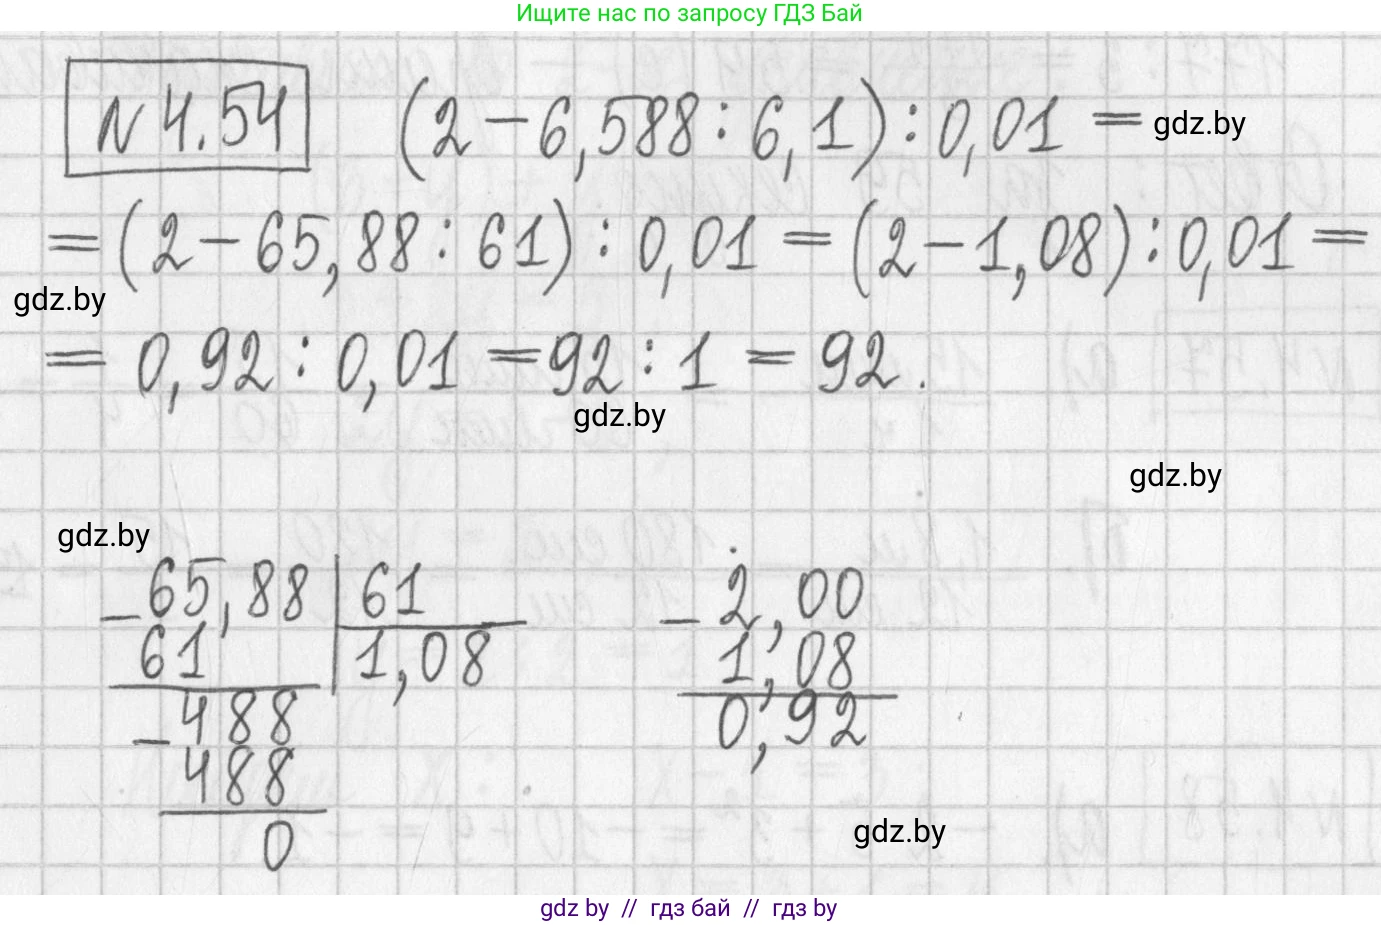 Ищите нас по запросу ГДЗ Бай
N 4.54 (2-6,588:6,1):0,01 =
gdz.by
=(2-65,88:61):0,01=(2-1,08):0,01=
gdz.by
= 0,92:0,01 =92:1 = 92.
gdz.by
gdz.by
gdz.by
-65,88 | 61
61 | 1,08
-488
488
0
-2,00
1,08
0,92
gdz.by
gdz by // гдз бай // гдз by